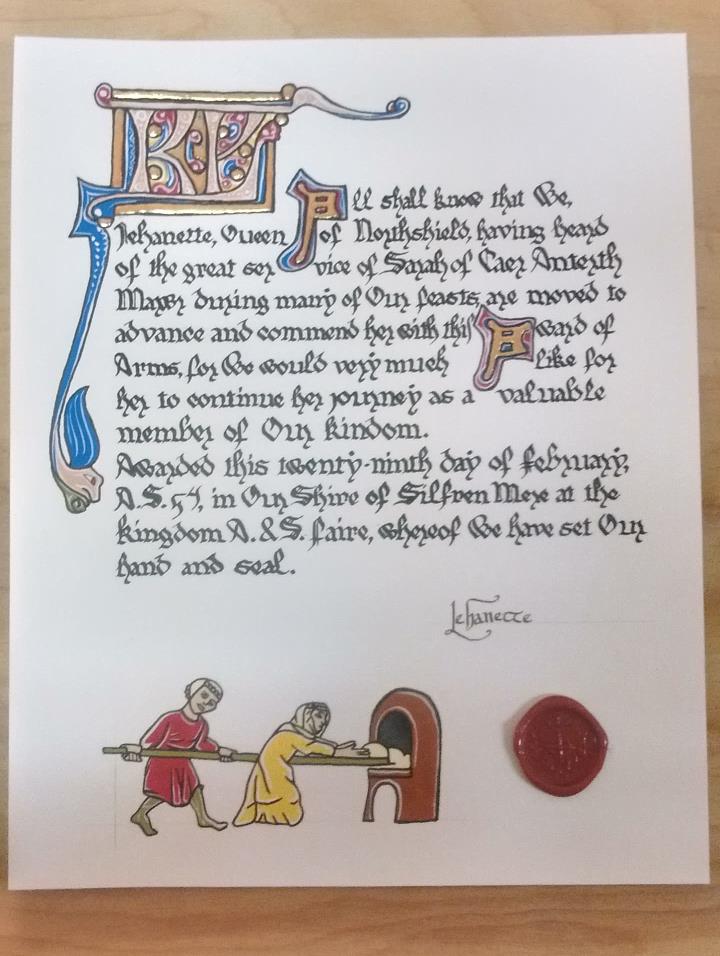 All shall know that We,
Jehanette, Queen of Northshield, having heard
of the great service of Sarah of Caer Anterth
Mawr during many of Our feasts, are moved to
advance and commend her with this Award of
Arms, for We would very much like for
her to continue her journey as a valuable
member of Our kindom.
Awarded this twenty-ninth day of february,
A.S. 54, in Our Shire of Silfren Mere at the
kingdom A.&S. faire, whereof We have set Our
hand and seal.
Jehanette